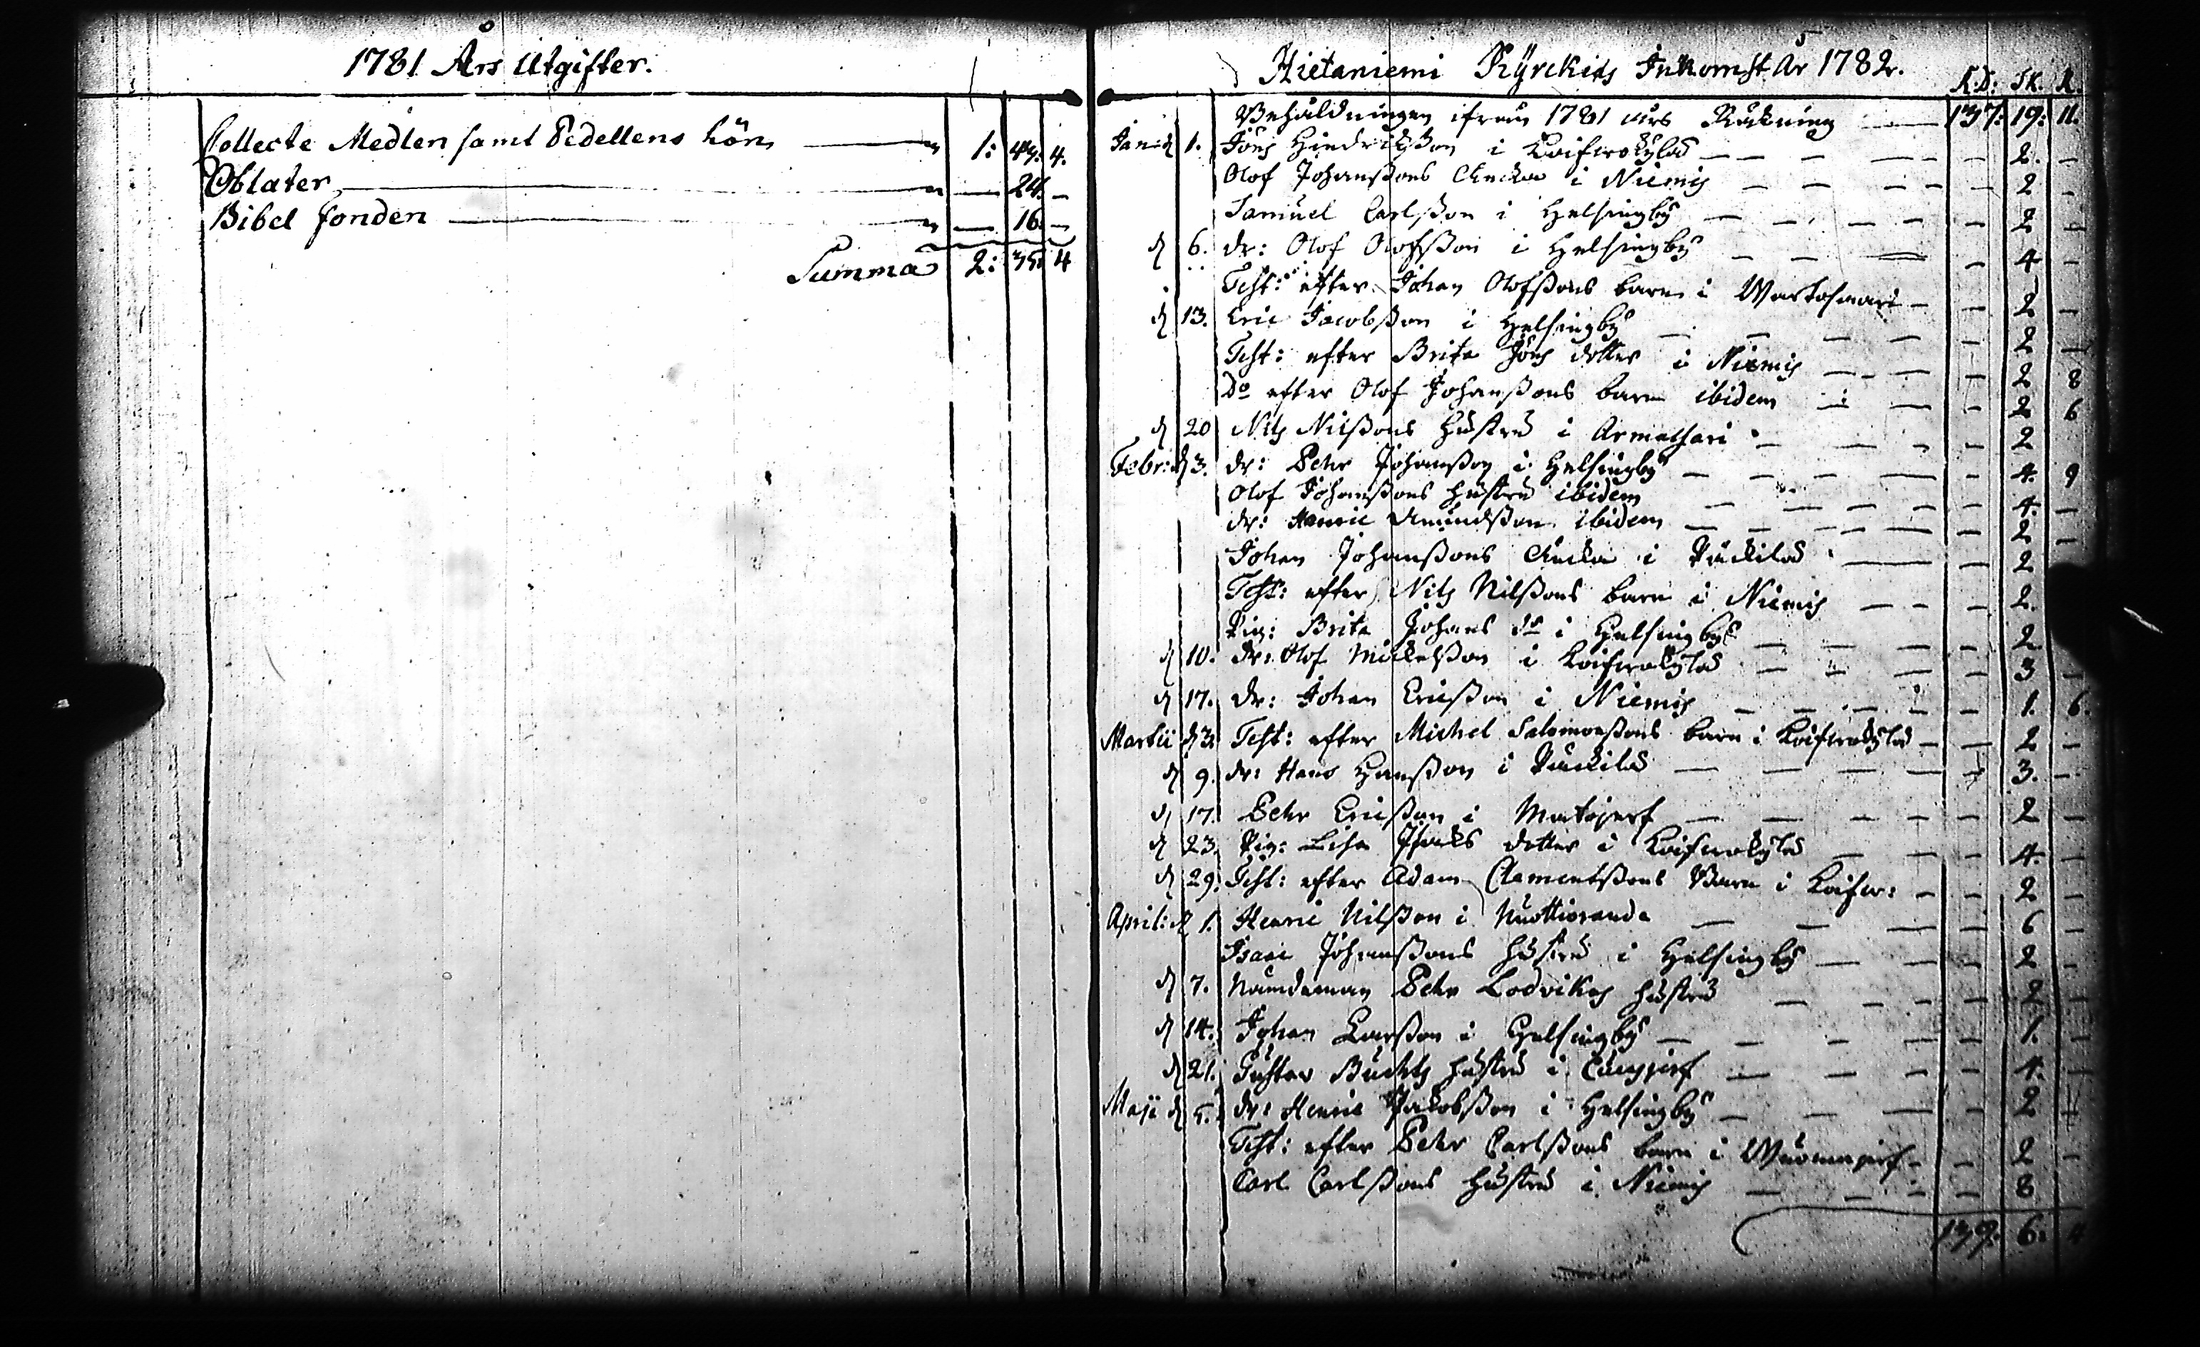 1781 Års Utgifter.
Collecte Medlen samt Pedellens Lön 1: 43: 4.
Oblater — 24. —
Bibel fonden — 16. —
Summa 2: 35. 4
Hietaniemi Kÿrckias Inkomst År 1782.
R:D: Sk. R.
Behåldningen ifrån 1781 års Räkning 137: 19: 11.
Januarii d 1. Jöns Hindrichßon i Koifwokylä — 2. —
Olof Johanßons Encka i Niemis — 2 —
Samuel Carlßon i Helsingby — 2 —
d 6. dr: Olof Olofßon i Helsingby — 4 —
Test: efter Johan Olofßons barn i Wartosaari — 2 —
d 13. Eric Jacobßon i Helsingby — 2 —
Test: efter Brita Jöns dotter i Niemis — 2 8
Do efter Olof Johanßons barn ibidem — 2 6
d 20 Nils Nilßons hustru i Armasari — 2
Febr: d 3. dr: Pehr Johanßon i Helsingby — 4. 9
Olof Johanßons hustru ibidem — 4. —
dr: Henric Amundßon ibidem — 2 —
Johan Johanßons Encka i Päckilä — 2
Test: efter Nils Nilßons barn i Niemis — 2.
Pig: Brita Johans dr i Helsingby — 2
d 10. dr: Olof Mickelßon i Koifwokylä — 3 —
d 17. dr: Johan Ericßon i Niemis — 1. 6.
Martii d 3. Test: efter Michel Salomonßons barn i Koifwokylä — 2 —
d 9. dr: Hans Hansßon i Päckilä — 3. —
d 17. Pehr Ericßon i Matojerf — 2 —
d 23. Pig: Lisa Isacks dotter i Koifwokylä — 4. —
d 29. Test: efter Adam Clementßons Barn i Koifw: — 2 —
April: d 1. Henric Nilßon i Nuottioranda — 6 —
Isaac Johanßons hustru i Helsingby — 2 —
d 7. Nämdeman Pehr Lodvikss hustru — 2 —
d 14. Johan Larßon i Helsingby — 1. —
d 21. Gustav Buchts hustru i — 4. —
Maji d 5. dr: Henric Jakobßon i Helsingby — 2 —
Test: efter Pehr Carlßons barn i Wuomajerf — 2 —
Carl Carlßons hustru i Niemis — 8
139: 6: